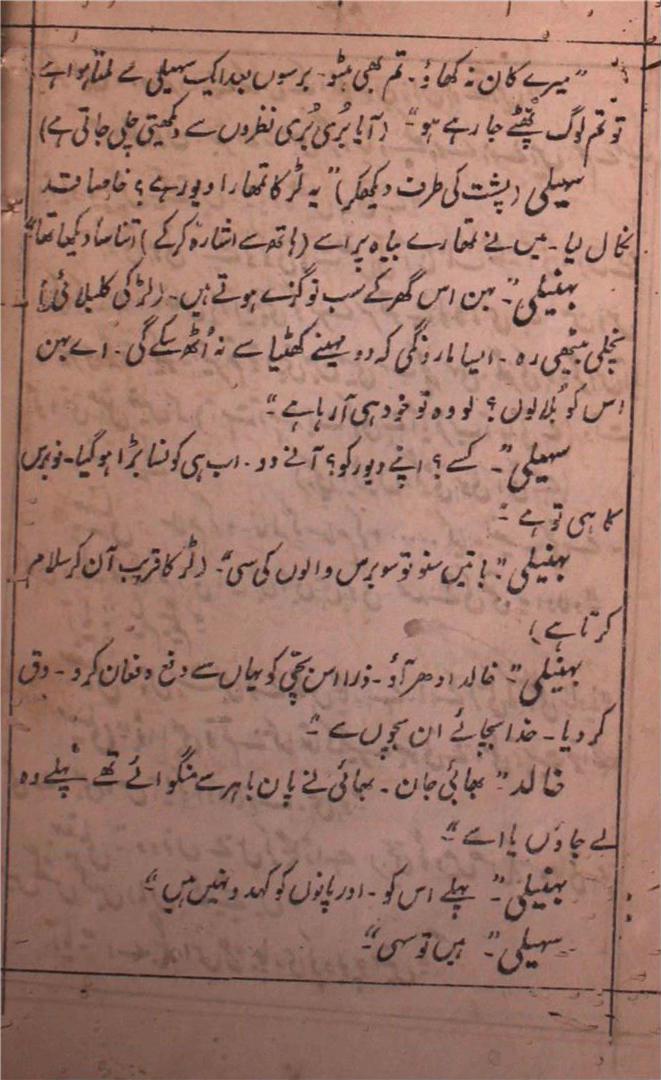 "میرے کان نہ کھاؤ۔ تم بھی ہٹو۔ برسوں بعد ایک سہیلی سے ملنا ہوا ہے
تو تم لوگ پھٹے جا رہے ہو" (آیا بُری بُری نظروں سے دیکھتی چلی جاتی ہے)
سہیلی (پشت کی طرف دیکھکر) "یہ لڑکا تمھارا دیور ہے؟ خاصا قد
نکال لیا۔ میں نے تمھارے بیاہ پر اسے (ہاتھ سے اشارہ کرکے) اتنا سا دیکھا تھا"
بہنیلی"۔ بہن اس گھر کے سب نوگزے ہوتے ہیں۔ (لڑکی کلبلائی)
نچلی بیٹھی رہ۔ ایسا مارونگی کہ دو مہینے کھٹیا سے نہ اُٹھ سکے گی۔ اے بہن
اس کو بُلا لوں؟ لو وہ تو خود ہی آ رہا ہے"۔
سہیلی"۔ کسے؟ اپنے دیور کو؟ آنے دو۔ اب ہی کونسا بڑا ہو گیا۔ نو برس
کا ہی تو ہے"۔
بہنیلی"۔ باتیں سنو تو سو برس والوں کی سی"۔ (لڑکا قریب آن کر سلام
کرتا ہے)
بہنیلی"۔ خالد ادھر آؤ۔ ذرا اس بچّی کو یہاں سے دفع دفعان کرو۔ دق
کر دیا۔ خدا بچائے ان بچوں سے"۔
خالد" بھابی جان۔ بھائی نے پان باہر سے منگوائے تھے پہلے وہ
لے جاؤں یا اسے"۔
بہنیلی"۔ پہلے اس کو۔ اور پانوں کو کہدو نہیں ہیں"۔
سہیلی"۔ ہیں تو سہی"۔